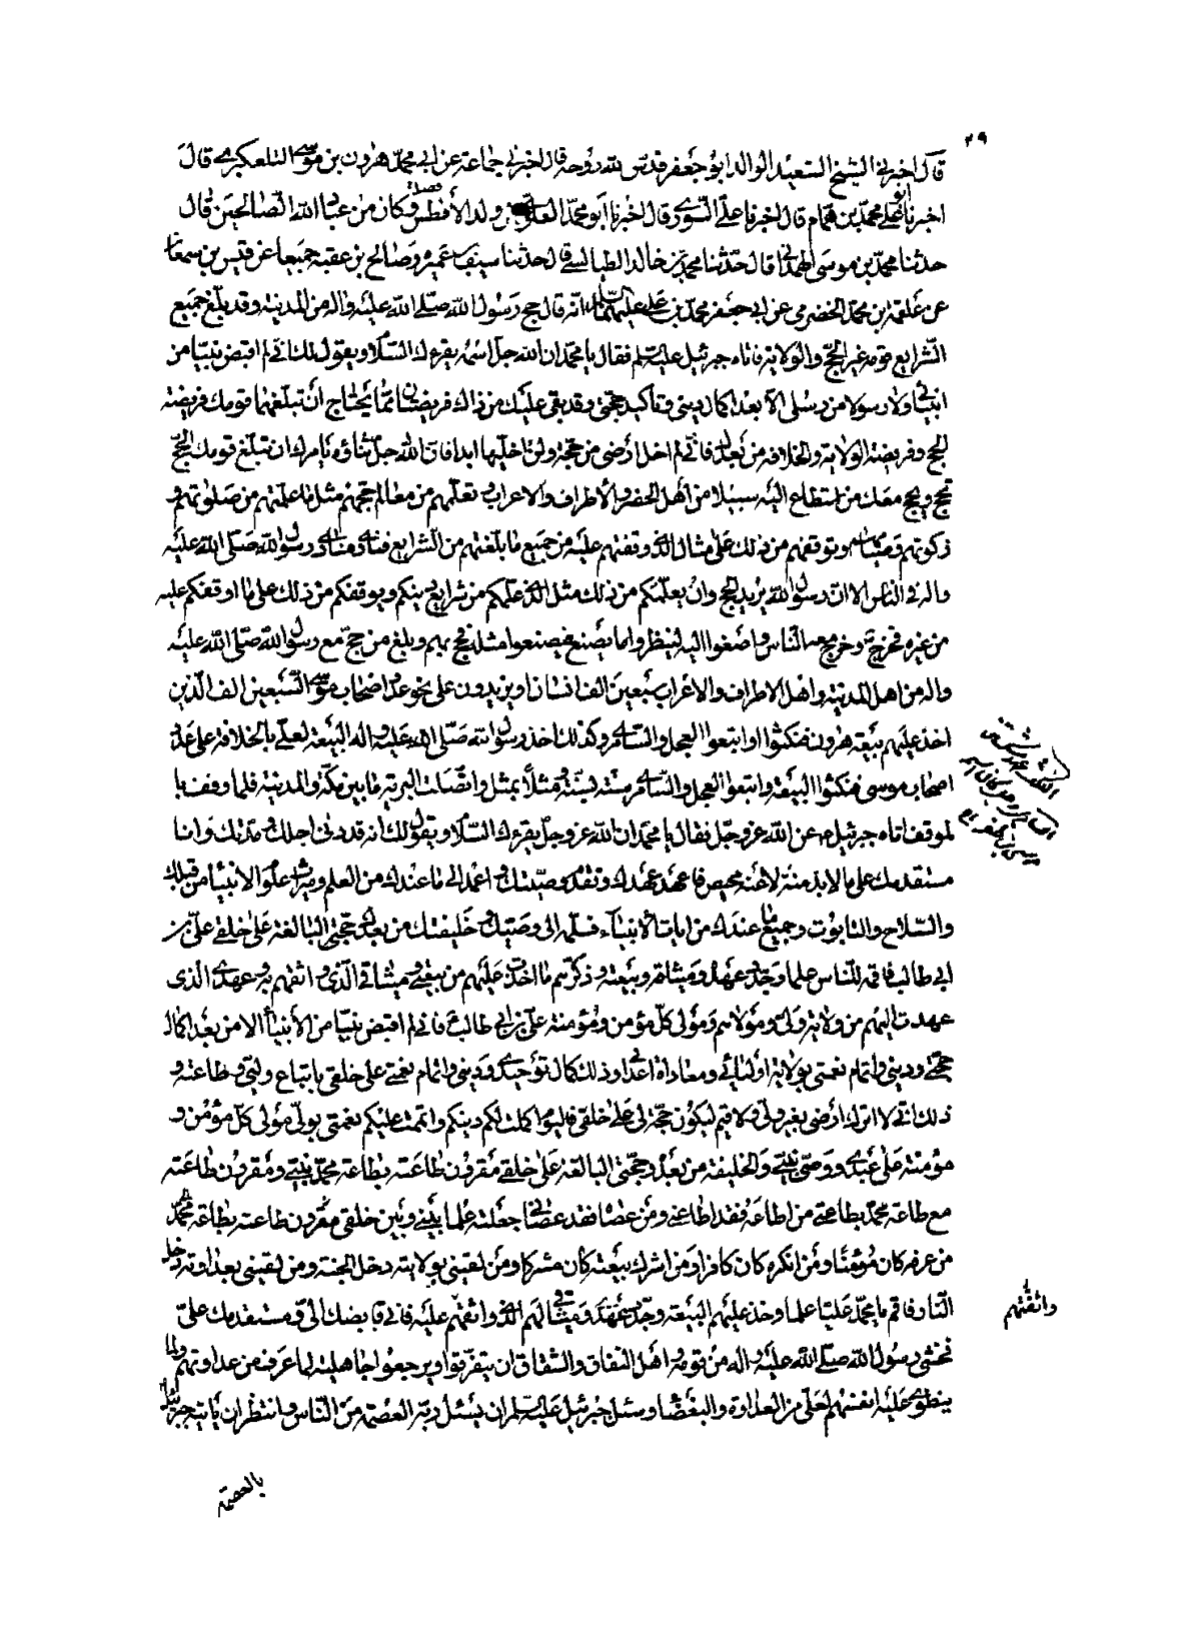 ٢٩
قال اخبرني الشيخ السعيد الوالد ابو جعفر قدس الله روحه قال اخبرني جماعة عن ابي محمد هرون بن موسى التلعكبري قال
اخبرنا ابو علي محمد بن همام قال اخبرنا علي السوري قال اخبرنا ابو محمد العلوي من ولد الأفطس وكان من عباد الله الصالحين قال
حدثنا محمد بن موسى الهمداني قال حدثنا محمد بن خالد الطيالسي قال حدثنا سيف بن عميره وصالح بن عقبه جميعا عن قيس بن سمعان
عن علقمه بن محمد الحضرمي عن ابي جعفر محمد بن علي عليهما السلام انه قال حج رسول الله صلى الله عليه واله من المدينه وقد بلغ جميع
الشرايع قومه غير الحج والولاية فاتاه جبرئيل عليه السلم فقال يا محمد ان الله جل اسمه يقرءك السلام ويقول لك اني لم اقبض نبيا من
انبيائي ولا رسولا من رسلي الا بعد اكمال ديني وتاكيد حجتي وقد بقي عليك من ذلك فريضتان مما يحتاج ان تبلغهما قومك فريضة
الحج وفريضة الولاية والخلافه من بعدك فاني لم اخل ارضي من حجة ولن اخليها ابدا فان الله جل ثناؤه يامرك ان تبلغ قومك الحج
تحج ويحج معك من استطاع اليه سبيلا من اهل الحضر والأطراف والاعراب وتعلمهم من معالم حجهم مثل ما علمتهم من صلوتهم و
زكوتهم وصيامهم وتوقفهم من ذلك على مثال الذي وقفتهم عليه من جميع ما بلغتهم من الشرايع فنادى منادي رسول الله صلى الله عليه
واله في الناس الا ان رسول الله يريد الحج وان يعلمكم من ذلك مثل الذي علمكم من شرايع دينكم ويوقفكم من ذلك على ما اوقفكم عليه
من غيره فخرج وخرج معه الناس واصغوا اليه لينظروا ما يصنع فيصنعوا مثله فحج بهم وبلغ من حج مع رسول الله صلى الله عليه
واله من اهل المدينة واهل الاطراف والاعراب سبعين الف انسان او يزيدون على نحو عدد اصحاب موسى السبعين الف الذين
اخذ عليهم بيعة هرون فنكثوا واتبعوا العجل والسامري وكذلك اخذ رسول الله صلى الله عليه واله البيعة لعلي بالخلافة على عدد
اصحاب موسى فنكثوا البيعة واتبعوا العجل والسامري سنة بسنة ومثلا بمثل واتصلت التلبية ما بين مكة والمدينة فلما وقف با
لموقف اتاه جبرئيل عن الله عز وجل فقال يا محمد ان الله عز وجل يقرءك السلام ويقول لك انه قد دنى اجلك ومدتك وانا
مستقدمك على ما لا بد منه ولا عنه محيص فاعهد عهدك وتقدم وصيتك واعمد الى ما عندك من العلم وميراث علوم الانبياء من قبلك
والسلاح والتابوت وجميع ما عندك من ايات الانبياء فسلمه الى وصيك وخليفتك من بعدك حجتي البالغة على خلقي علي بن
ابي طالب فاقمه للناس علما وجدد عهده وميثاقه وبيعته وذكرهم ما اخذت عليهم من بيعتي وميثاقي الذي واثقتهم به وعهدي الذي
عهدت اليهم من ولاية وليي ومولاهم ومولى كل مؤمن ومؤمنة علي بن ابي طالب فاني لم اقبض نبيا من الأنبياء الا من بعد اكمال
حجتي وديني واتمام نعمتي بولاية اوليائي ومعاداة اعدائي وذلك كمال توحيدي وديني واتمام نعمتي على خلقي باتباع وليي وطاعته و
ذلك اني لا اترك ارضي بغير ولي ولا قيم ليكون حجة لي على خلقي فاليوم اكملت لكم دينكم واتممت عليكم نعمتي بولي مولى كل مؤمن و
مؤمنة علي عبدي ووصي نبيي والخليفة من بعده وحجتي البالغة على خلقي مقرون طاعته بطاعة محمد نبيي ومقرون طاعته
مع طاعة محمد بطاعتي من اطاعه فقد اطاعني ومن عصاه فقد عصاني جعلته علما بيني وبين خلقي
من عرفه كان مؤمنا ومن انكره كان كافرا ومن اشرك بيعته كان مشركا ومن لقيني بولايته دخل الجنة ومن لقيني بعداوته دخل
النار فاقم يا محمد عليا علما وخذ عليهم البيعة وجدد عهدي وميثاقي لهم الذي واثقتهم عليه فاني قابضك الي ومستقدمك علي
فخشي رسول الله صلى الله عليه واله من قومه واهل النفاق والشقاق ان يتفرقوا ويرجعوا جاهلية لما عرف من عداوتهم ولما
ينطوي عليه انفسهم لعلي من العداوة والبغضا وسئل جبرئيل عليه السلم ان يسئل ربه العصمة من الناس وانتظر ان ياتيه جبرئيل
واثقتهم
بالعصمة